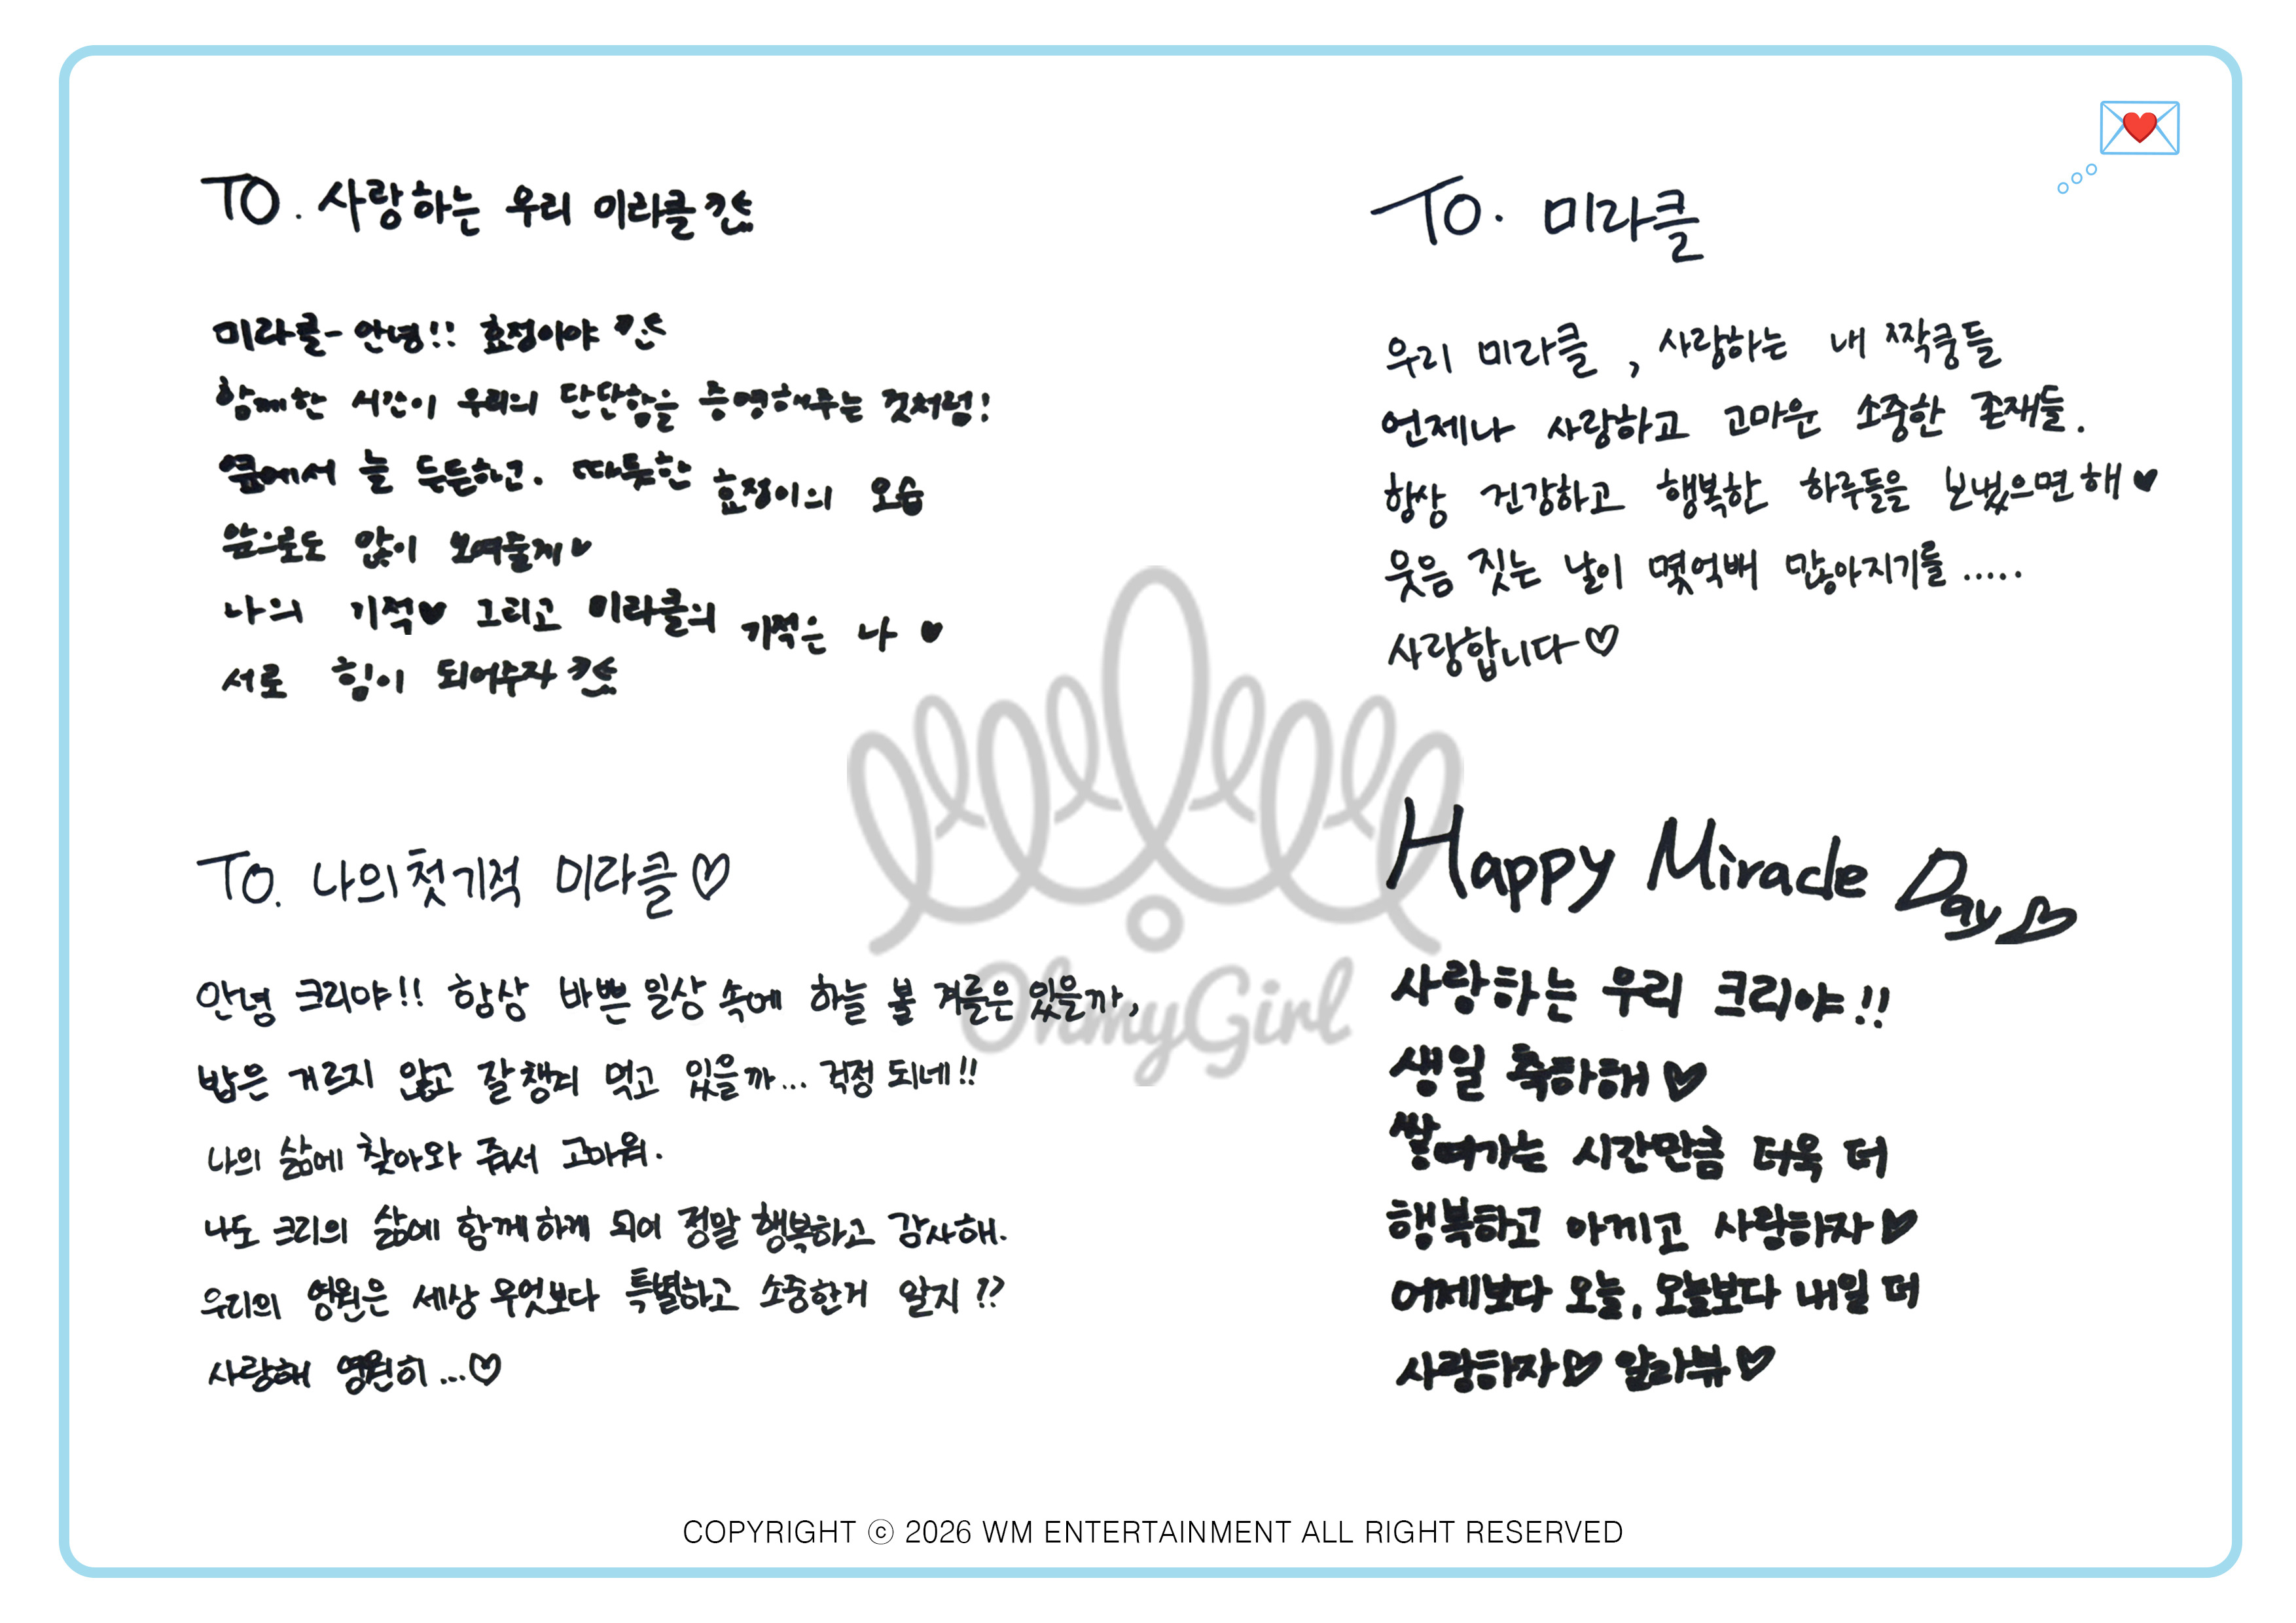 TO. 사랑하는 우리 미라클
미라클- 안녕!! 효정이야
함께한 시간이 우리의 단단함을 증명해주는 것처럼!
옆에서 늘 든든하고. 따뜻한 효정이의 모습
앞으로도 많이 보여줄게♥
나의 기적♥ 그리고 미라클의 기적은 나 ♥
서로 힘이 되어주자
TO. 미라클
우리 미라클, 사랑하는 내 짝쿵들
언제나 사랑하고 고마운 소중한 존재들.
항상 건강하고 행복한 하루들을 보냈으면 해♥
웃음 짓는 날이 몇억배 많아지기를.....
사랑합니다♡
TO. 나의 첫 기적 미라클♡
안녕 크리야!! 항상 바쁜 일상 속에 하늘 볼 겨를은 있을까,
밥은 거르지 않고 잘 챙겨 먹고 있을까... 걱정 되네!!
나의 삶에 찾아와 줘서 고마워.
나도 크리의 삶에 함께 하게 되어 정말 행복하고 감사해.
우리의 영원은 세상 무엇보다 특별하고 소중한거 알지??
사랑해 영원히...♡
Happy Miracle Day♡
사랑하는 우리 크리야!!
생일 축하해♡
쌓여가는 시간만큼 더욱 더
행복하고 아끼고 사랑하자♡
어제보다 오늘, 오늘보다 내일 더
사랑하자♡ 알라뷰♡
OhmyGirl
COPYRIGHT ⓒ 2026 WM ENTERTAINMENT ALL RIGHT RESERVED